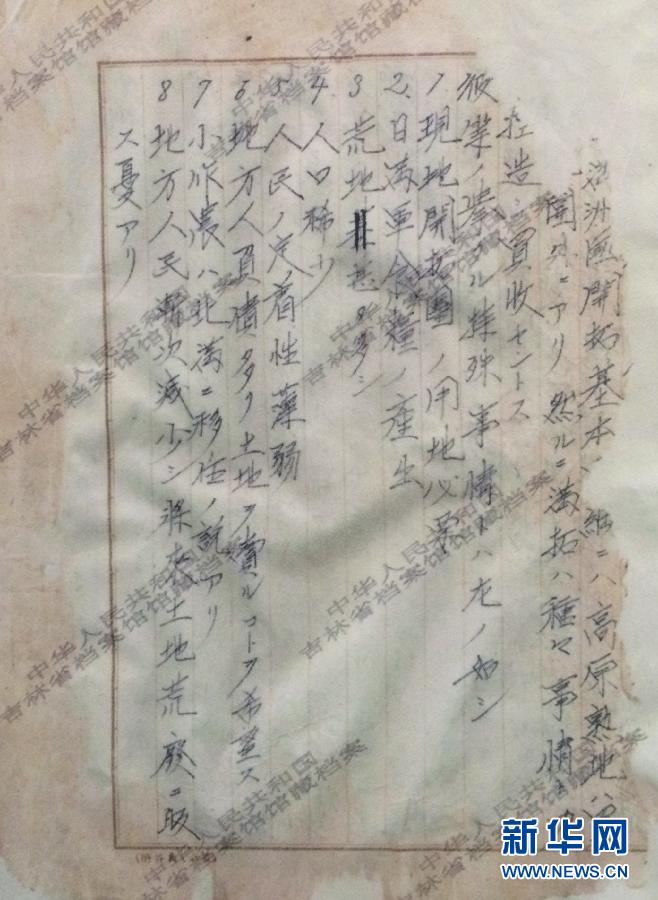 満洲國開拓基本 ニハ高原熟地ハ
圍外ニアリ然ルニ満拓ハ種々事情ヲ
担造シ買收セントス
彼案ノ挙ル特殊事情トハ左ノ如シ
1 現地開拓團ノ用地必要
2 日満軍食糧ノ產出
3 荒地 多シ
4 人口稀少
5 人民ノ定着性薄弱
6 地方人負債多リ土地ヲ賣ルコトヲ希望ス
7 小作農ハ北満ニ移住ノ説アリ
8 地方人民漸次減少シ将来土地荒廢ニ
ス憂アリ
中华人民共和国
吉林省档案馆馆藏档案
新华网
WWW.NEWS.CN